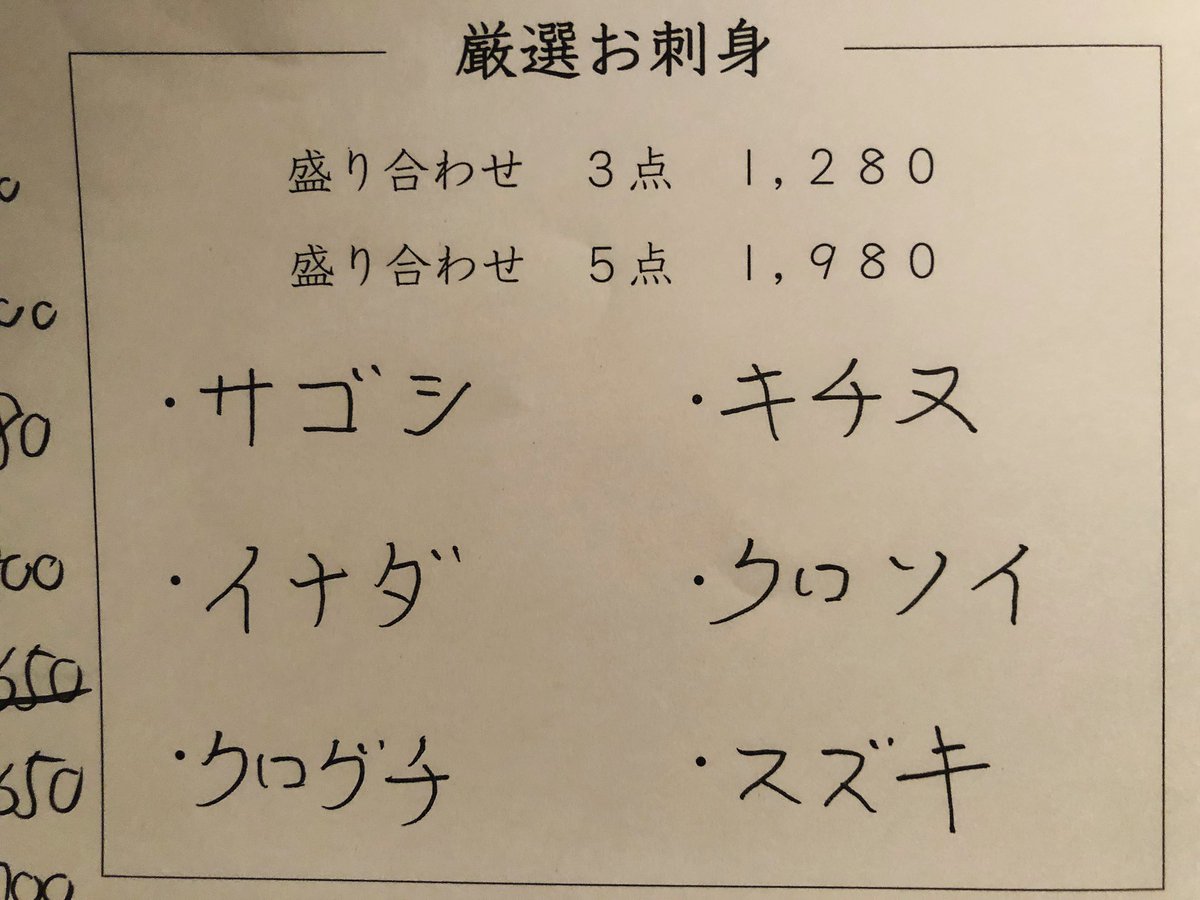 厳選お刺身
盛り合わせ　3点　1,280
盛り合わせ　5点　1,980
・サゴシ　・キチヌ
・イナダ　・クロソイ
・クログチ　・スズキ
650
650